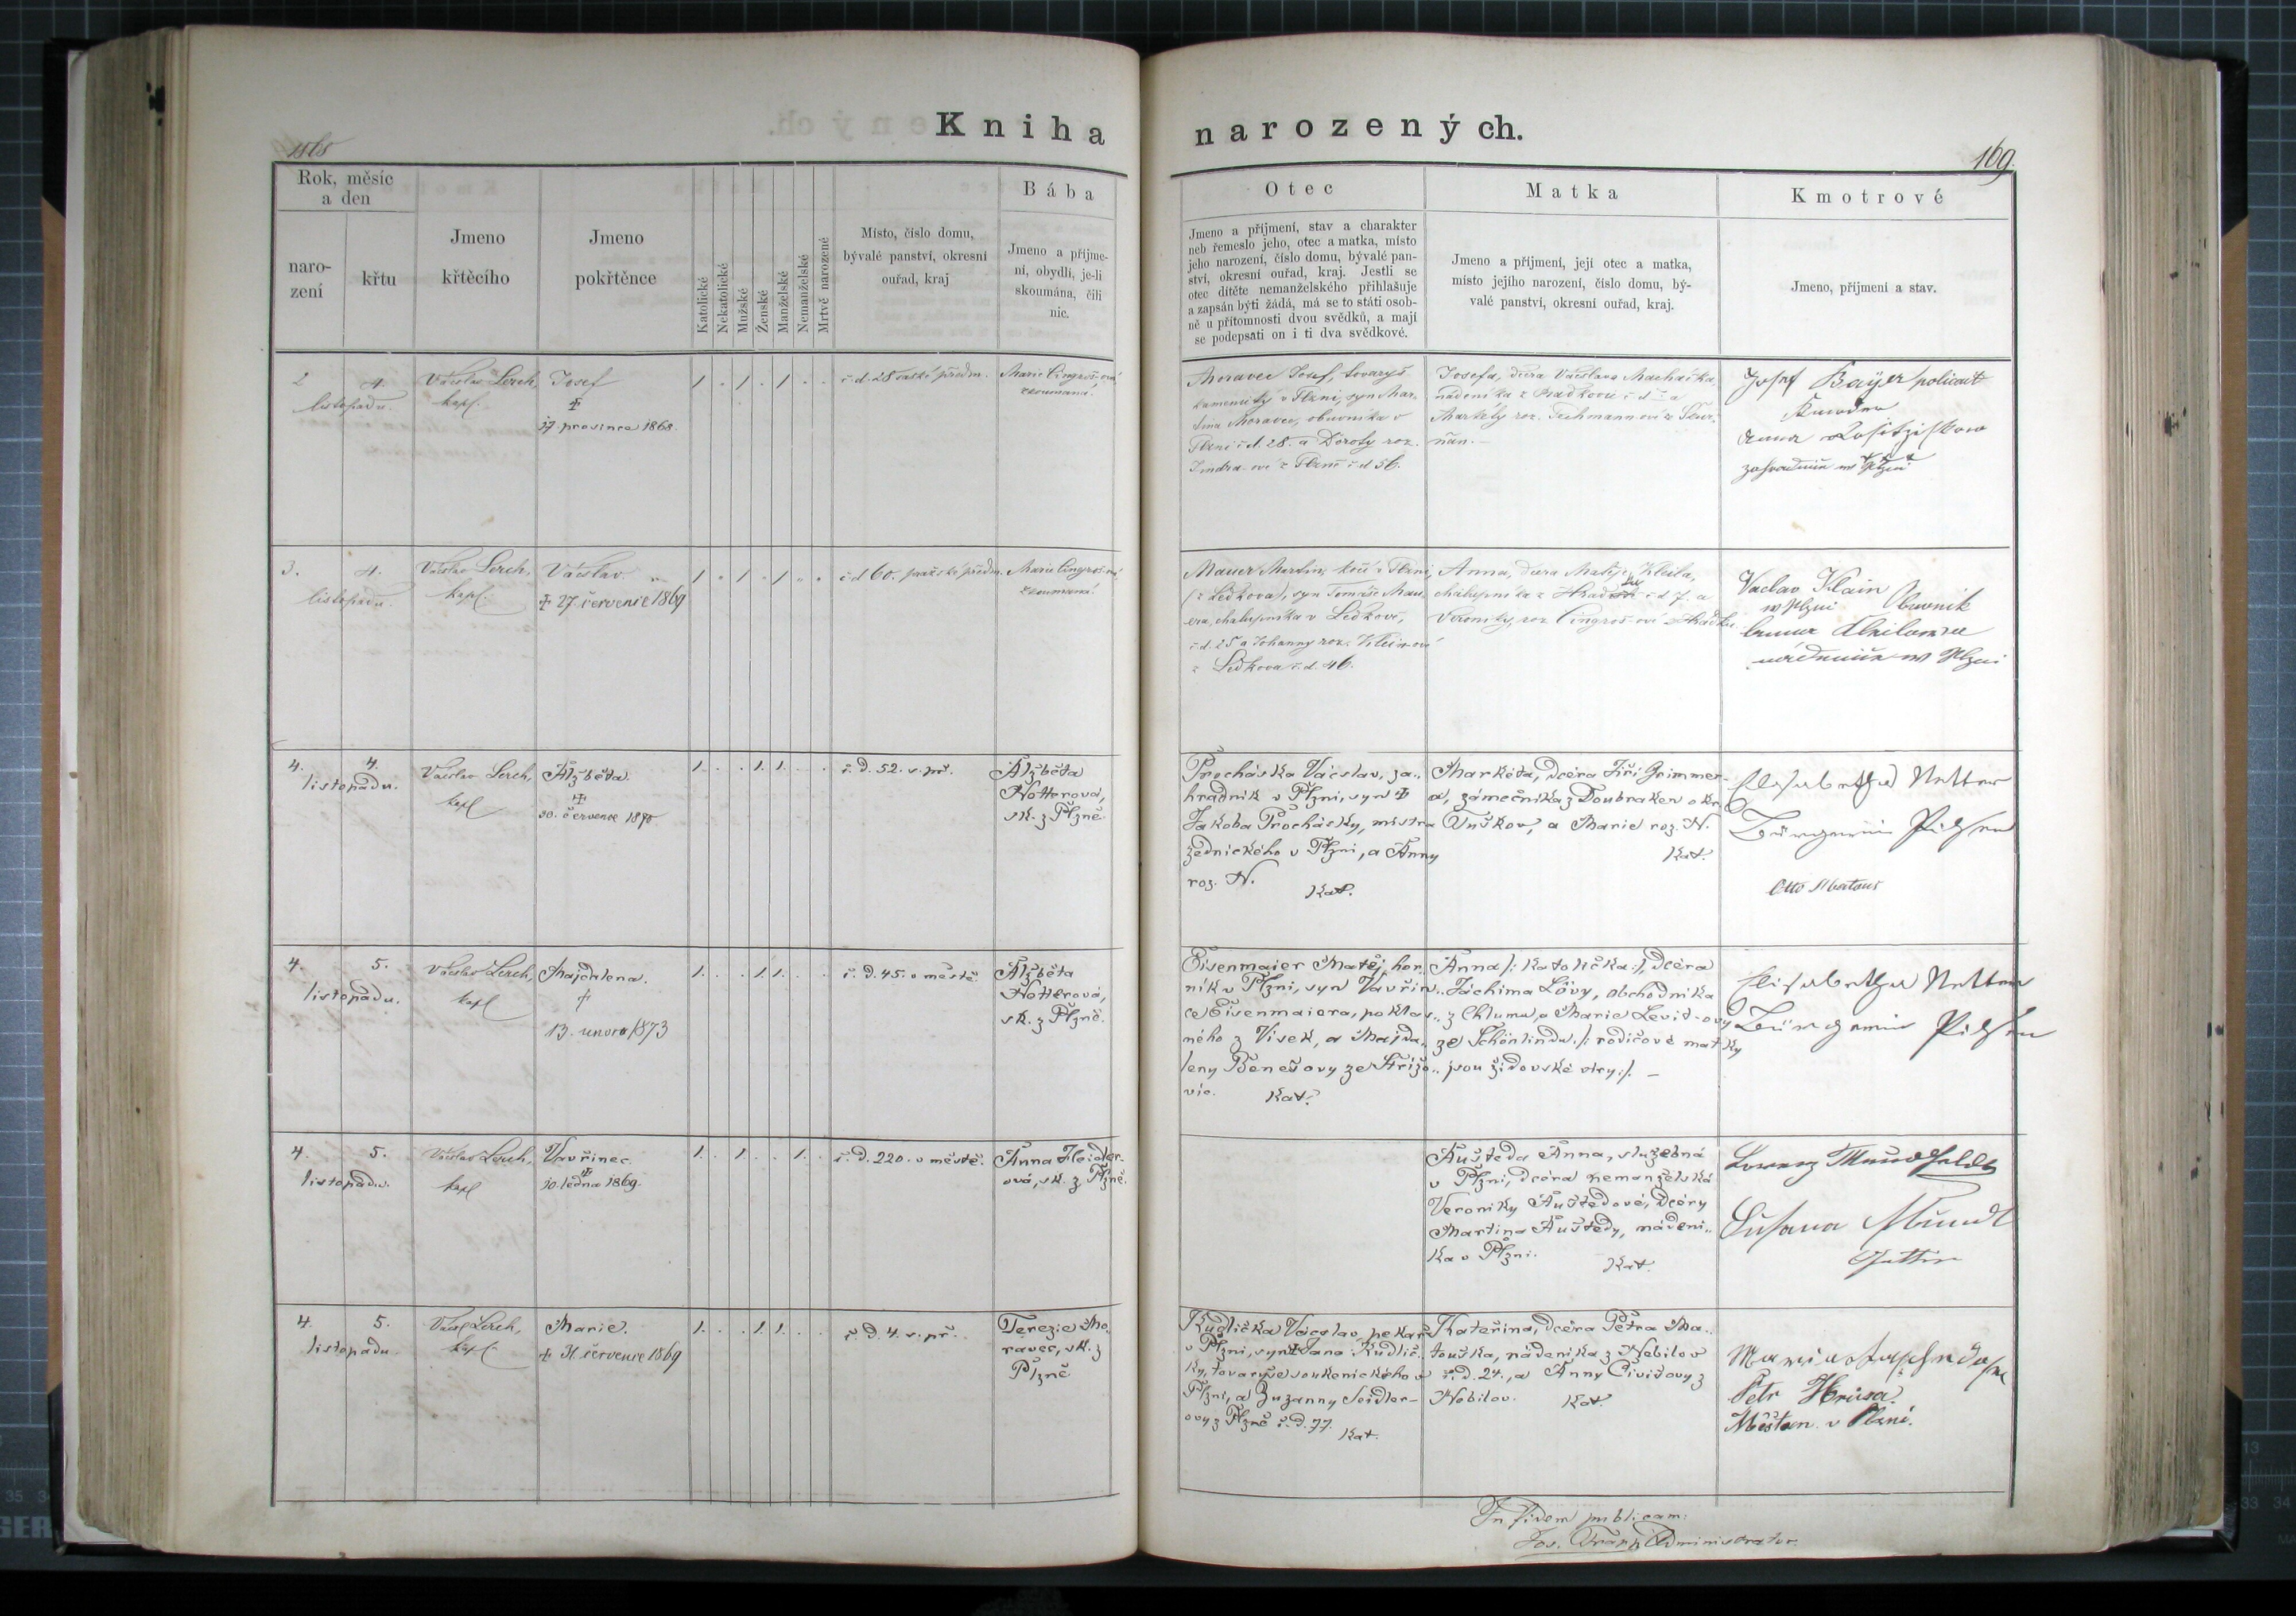 Kniha
narozených.
1868
169.
Rok, měsíc
a den
naro-
zení
křtu
Jmeno
křtěcího
Jmeno
pokřtěnce
Katolické
Nekatolické
Mužské
Ženské
Manželské
Nemanželské
Mrtvě narozené
Místo, číslo domu,
bývalé panství, okresní
ouřad, kraj
Bába
Jmeno a příjme-
ní, obydlí, je-li
skoumána, čili
nic.
Otec
Jmeno a příjmení, stav a charakter
neb řemeslo jeho, otec a matka, místo
jeho narození, číslo domu, bývalé pan-
ství, okresní ouřad, kraj. Jestli se
otec dítěte nemanželského přihlašuje
a zapsán býti žádá, má se to státi osob-
ně u přítomnosti dvou svědků, a mají
se podepsati on i ti dva svědkové.
Matka
Jmeno a příjmení, její otec a matka,
místo jejího narození, číslo domu, bý-
valé panství, okresní ouřad, kraj.
Kmotrové
Jmeno, příjmení a stav.
2 4.
listopadu.
Václav Lerch,
kapl.
Josef
17 prosince 1868.
1 . 1 . 1 . .
č d. 28 saské předm.
Marie Cingroš-ová
zkoumaná.
Moravec Josef, tovaryš
kamenický v Plzni, syn Mar-
tina Moravec, obuvníka v
Plzni č d. 28. a Doroty roz.
Jindra-ové z Plzně č d 56.
Josefa, dcera Václava Machačka,
nádeníka z
Markéty roz.
Josef Bayer policait
Anna
3. 4.
listopadu.
Václav Lerch,
kapl.
Václav.
27. července 1869
1 . 1 . 1 . .
č d 60. pražské předm.
Marie Cingroš-ová
zkoumaná.
Mauer Martin, kočí v Plzni,
(z Ledkova), syn Tomáše Mau-
era, chalupníka v Ledkově,
č. d. 25 a Johanny roz. Klein-ové
z Ledkova č. d. 46.
Anna, dcera Matěje
chalupníka z Hradku č d 7. a
Veroniky, roz. Cingroš-ové z Hrádku.
Vaclav Klain
w Plzni Obuvnik
w Plzni
4. 4.
listopadu.
Václav Lerch,
kapl
Alžběta.
30. července 1890
1. . . 1. 1. . .
č. d. 52. s. př.
Alžběta
Notterová,
sk. z Plzně.
Procháska Václav, za-
hradník v Plzni, syn
Jakoba Prochásky, mistra
zednického v Plzni, a Anny
roz. N.
Kat.
Markéta, dcéra Jiří Grimmer-
a, zámečníka z Doubraken okr.
Tuškov, a Marie roz. N.
Kat.
Elisabetha Netter
Bürgerin Pilsen
4. 5.
listopadu.
Václav Lerch,
kapl
Majdalena.
13. unora 1873
1. . . 1. 1. . .
č. d. 45. v městě.
Alžběta
Notterová,
sk. z Plzně.
Eisenmaier Matěj, hor-
ník v Plzni, syn Vavřin-
ce Eisenmaiera, poklas-
ného z Vísek, a Majda-
leny Benešovy ze Střížo-
vic. Kat.
Anna /: katolička :/, dcéra
Jáchima Lövy, obchodníka
z Chluma, a Marie Levit-ovy
ze Schönlindu. /: rodičové matky
jsou židovské víry :/. –
Elisabetha Netter
Bürgerin Pilsen
4. 5.
listopadu.
Václav Lerch,
kapl
Vavřinec.
10. ledna 1869.
1. . 1. . . 1. .
č. d. 220. v městě.
Anna Heidler-
ová, sk. z Plzně.
Aušteda Anna, služebná
v Plzni, dcéra nemanželská
Veroniky Auštedové, dcéry
Martina Auštedy, nádení-
ka v Plzni.
Kat.
Lorenz
Susana
Gattin
4. 5.
listopadu.
Václ Lerch,
kapl.
Marie.
31. července 1869
1. . . 1. 1. . .
č. d. 4. s. př.
Terezie Mo-
ravec, sk. z
Plzně
Kudlička Václav, pekař
v Plzni, syn Jana Kudlič-
ky, tovaryše soukenického v
Plzni, a Zuzanny Seidler-
ovy z Plzně č. d. 77. Kat.
Kateřina, dcéra Petra Ma-
touška, nádeníka z Nebílov
č. d. 24., a Anny Čivišovy z
Nebílov. Kat.
Petr Hrusa.
Měšťan v Plzni.
In fidem publicam:
Jos. Franz Administrator.